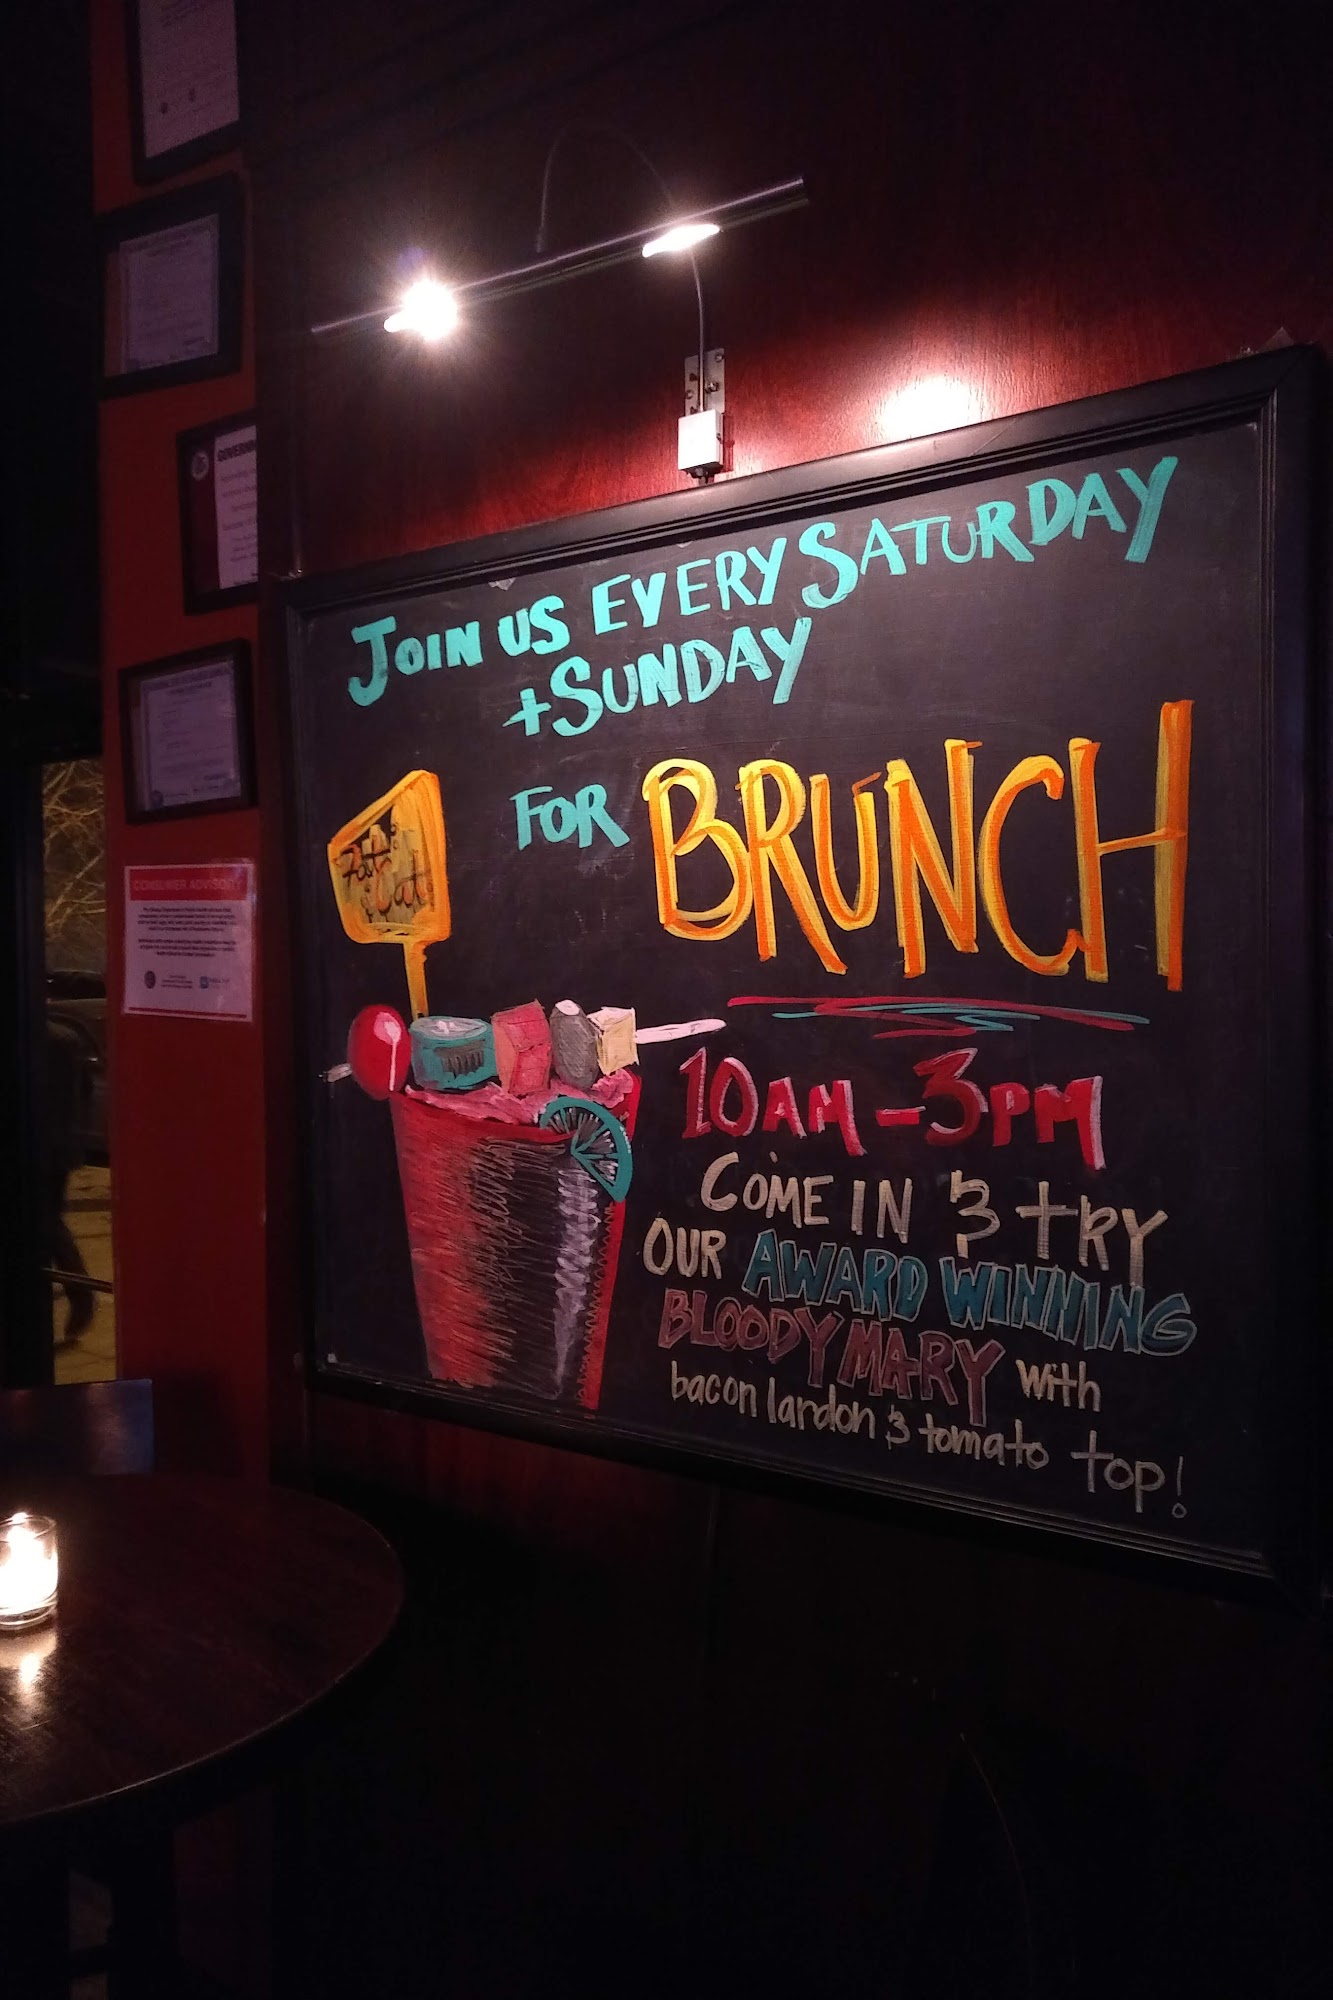 JOIN US EVERY SATURDAY
+ SUNDAY
FOR BRUNCH
10AM - 3PM
COME IN & TRY
OUR AWARD WINNING
BLOODY MARY with
bacon lardon & tomato top!
GOVERN
CONSUMER ADVISORY